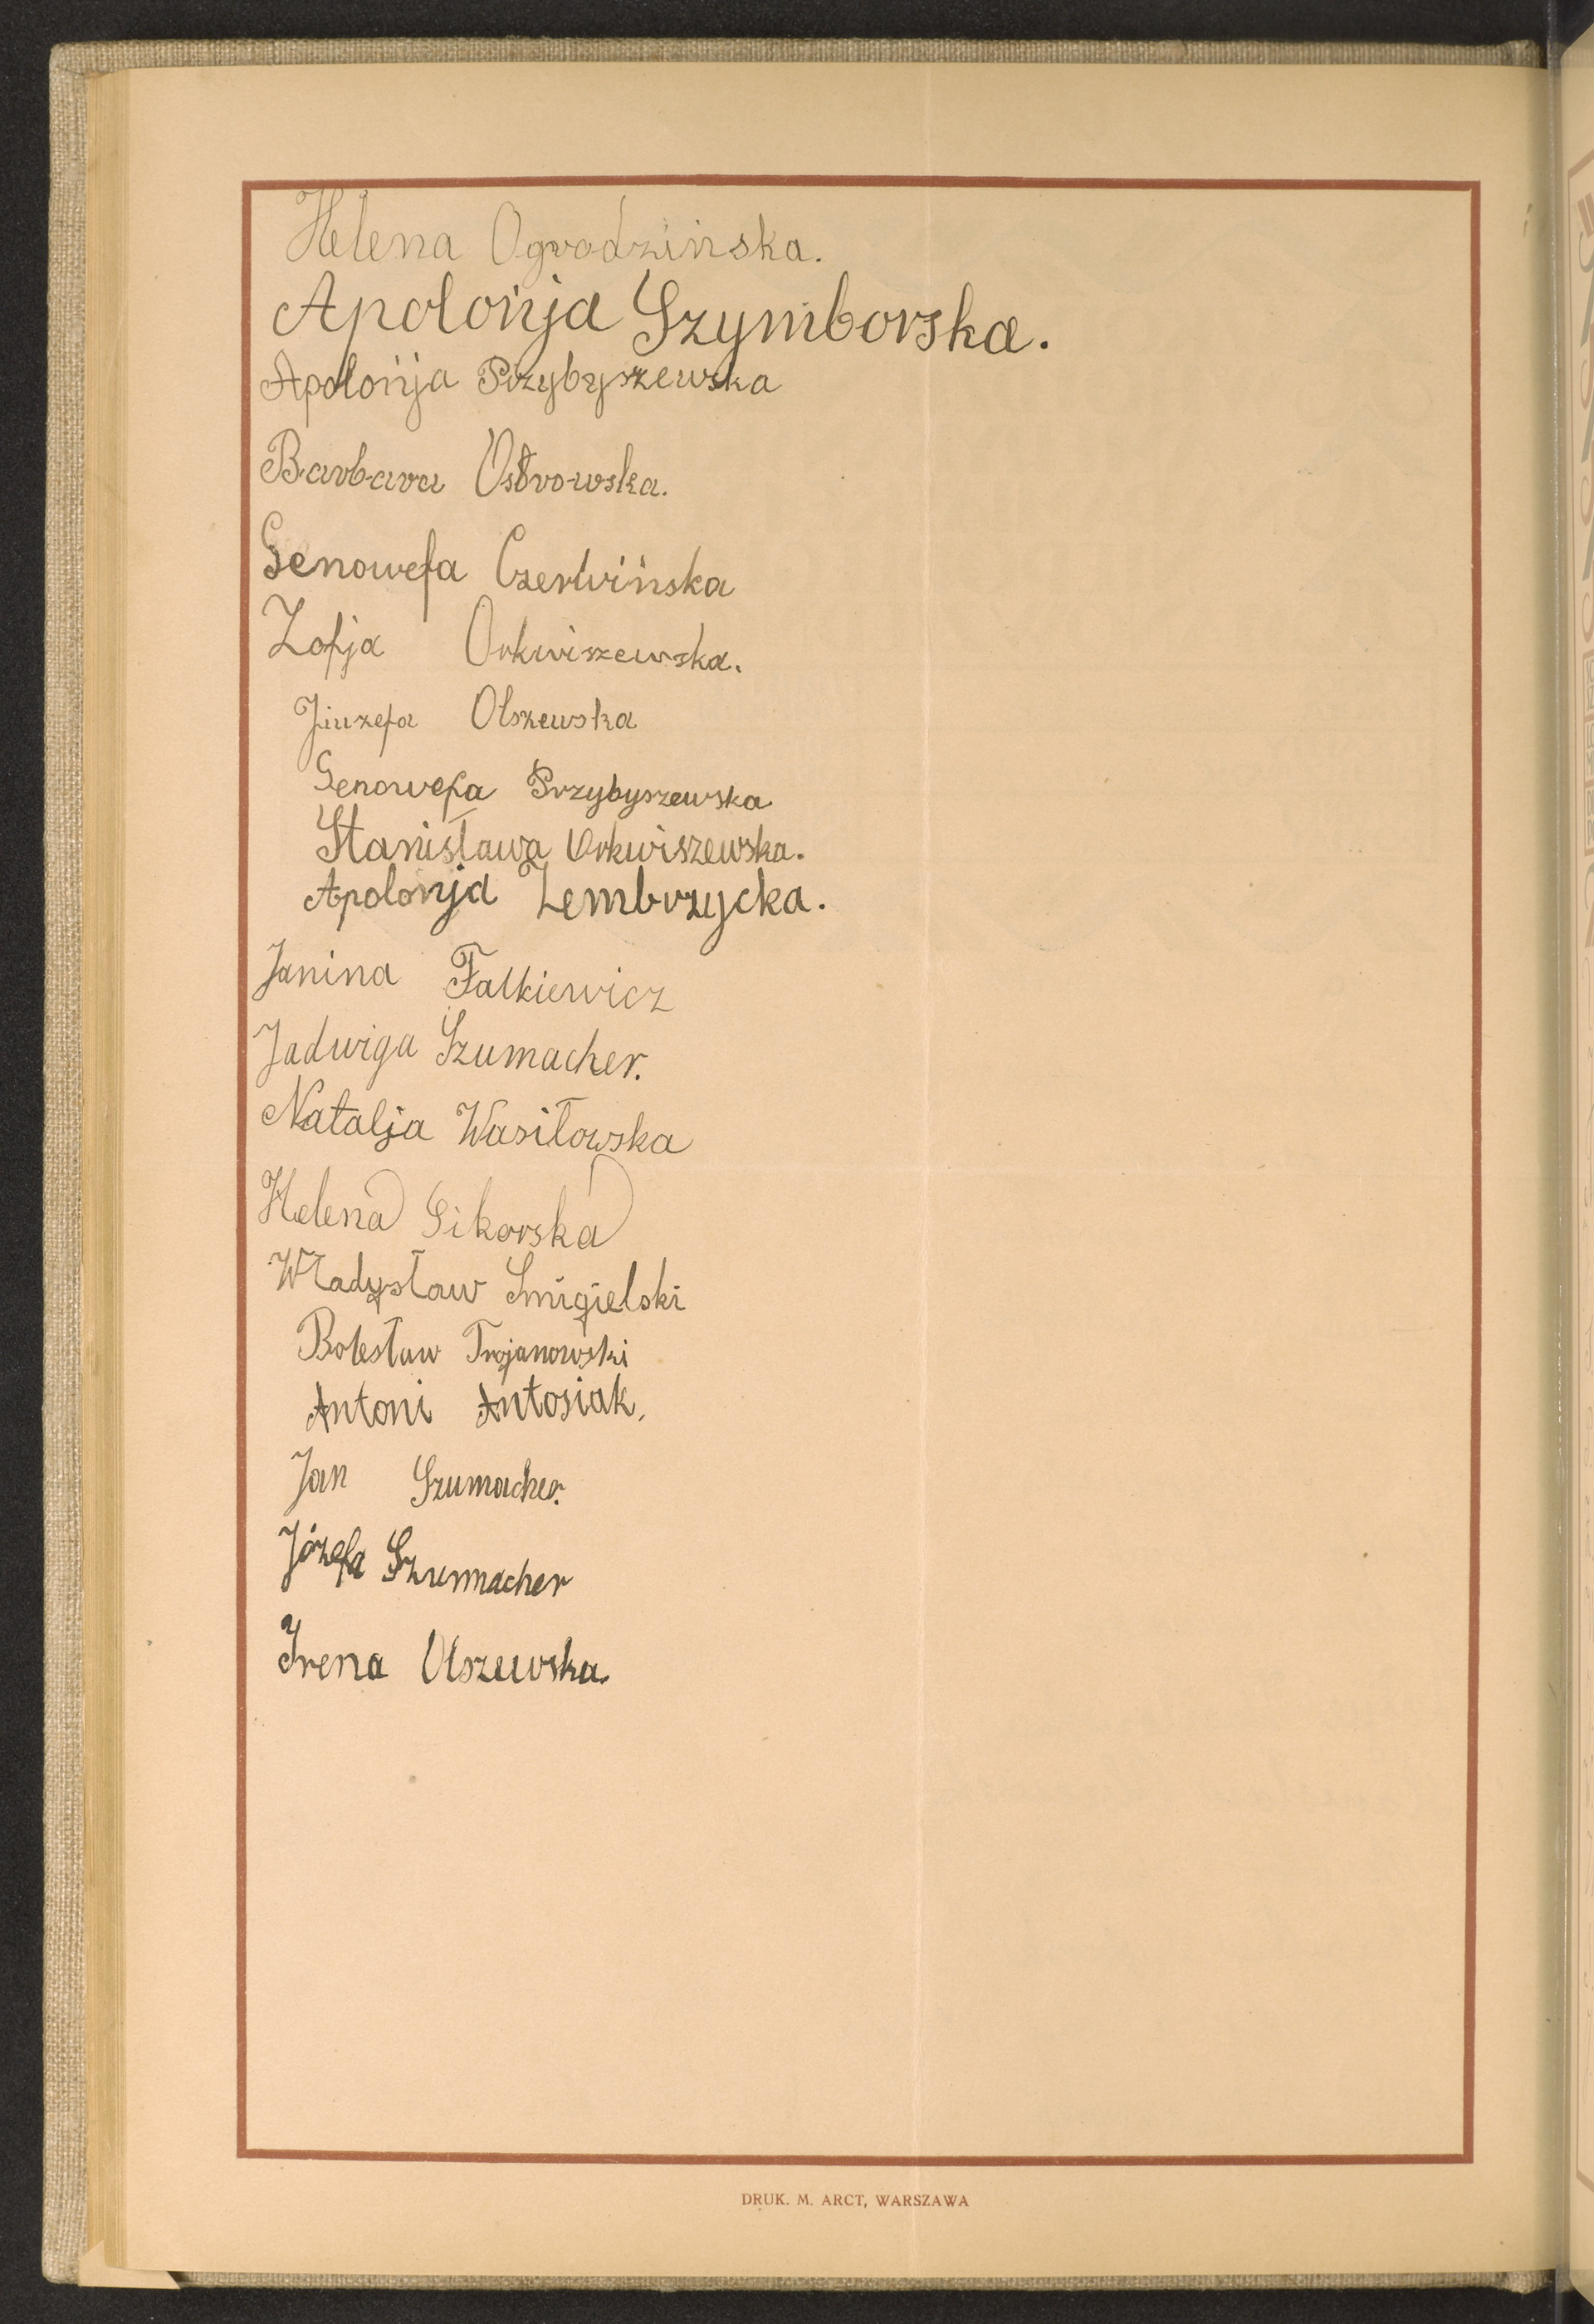 Helena Ogrodzińska.
Apolońja Szymborska.
Apolońja Przybyszewska
Barbara Ostrowska.
Genowefa Czerwińska
Zofja Orkwiszewska.
Jiuzefa Olszewska
Genowefa Przybyszewska
Stanisława Orkwiszewska.
Apolonja Zembrzycka.
Janina Falkiewicz
Jadwiga Szumacher.
Natalja Wasiłowska
Helena Sikorska
Władysław Smigielski
Bolesław Trojanowski
Antoni Antosiak.
Jan Szumacher.
Józefa Szumacher
Irena Olszewska.
DRUK. M. ARCT, WARSZAWA